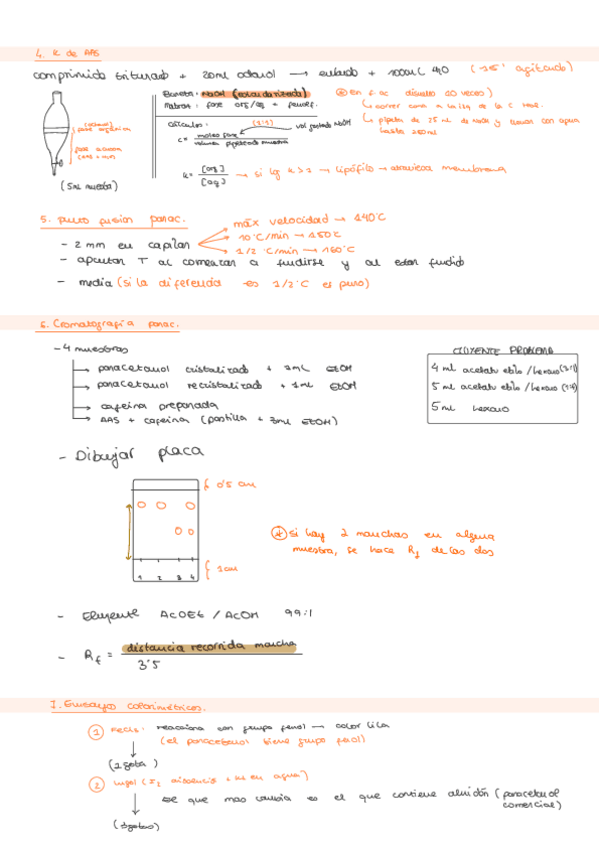 4. K de AAS
comprimido triturado + 20mL octanol → embudo + 100mL H2O (15' agitando)
(100ml)
fase orgánica
fase acuosa
(5mL muestra)
Bureta: NaOH (estandarizada)
Matraz: fase org/aq + fenolf.
Cálculos: (1:1) vol gastado NaOH
c = moles fase / volumen pipeteado muestra
K = [org] / [aq] → si log K > 1 → lipófilo → atraviesa membrana
* En f. ac. diluato 10 veces)
↳ pipeta de 25 mL de NaOH y llevar con agua
hasta 250mL
5. punto fusión parac.
- 2 mm en capilar
máx velocidad → 140°C
10°C/min → 150°C
1/2 °C/min → 160°C
- apuntar T al comenzar a fundirse y al estar fundido
- media (si la diferencia es 1/2°C es puro)
6. Cromatografía parac.
- 4 muestras
→ paracetamol cristalizado + 1mL EtOH
→ paracetamol recristalizado + 1mL EtOH
→ cafeína preparada
→ AAS + cafeína (pastilla + 3mL EtOH)
ELUYENTE PROBLEMA
4 ml acetato etilo / hexano (3:1)
5 ml acetato etilo / hexano (1:1)
5 ml hexano
- Dibujar placa
0'5 cm
1 2 3 4
1cm
* si hay 2 manchas en alguna
muestra, se hace Rf de las dos
- Eluyente AcOEt / AcOH 99:1
- Rf = distancia recorrida mancha
3'5
7. Ensayos colorimétricos.
1 FeCl3: reacciona con grupo fenol → color lila
(el paracetamol tiene grupo fenol)
(1 gota)
2 Lugol (I2 disolución + KI en agua)
→ el que mas cambia es el que contiene almidón (paracetamol
comercial)
(3gotas)